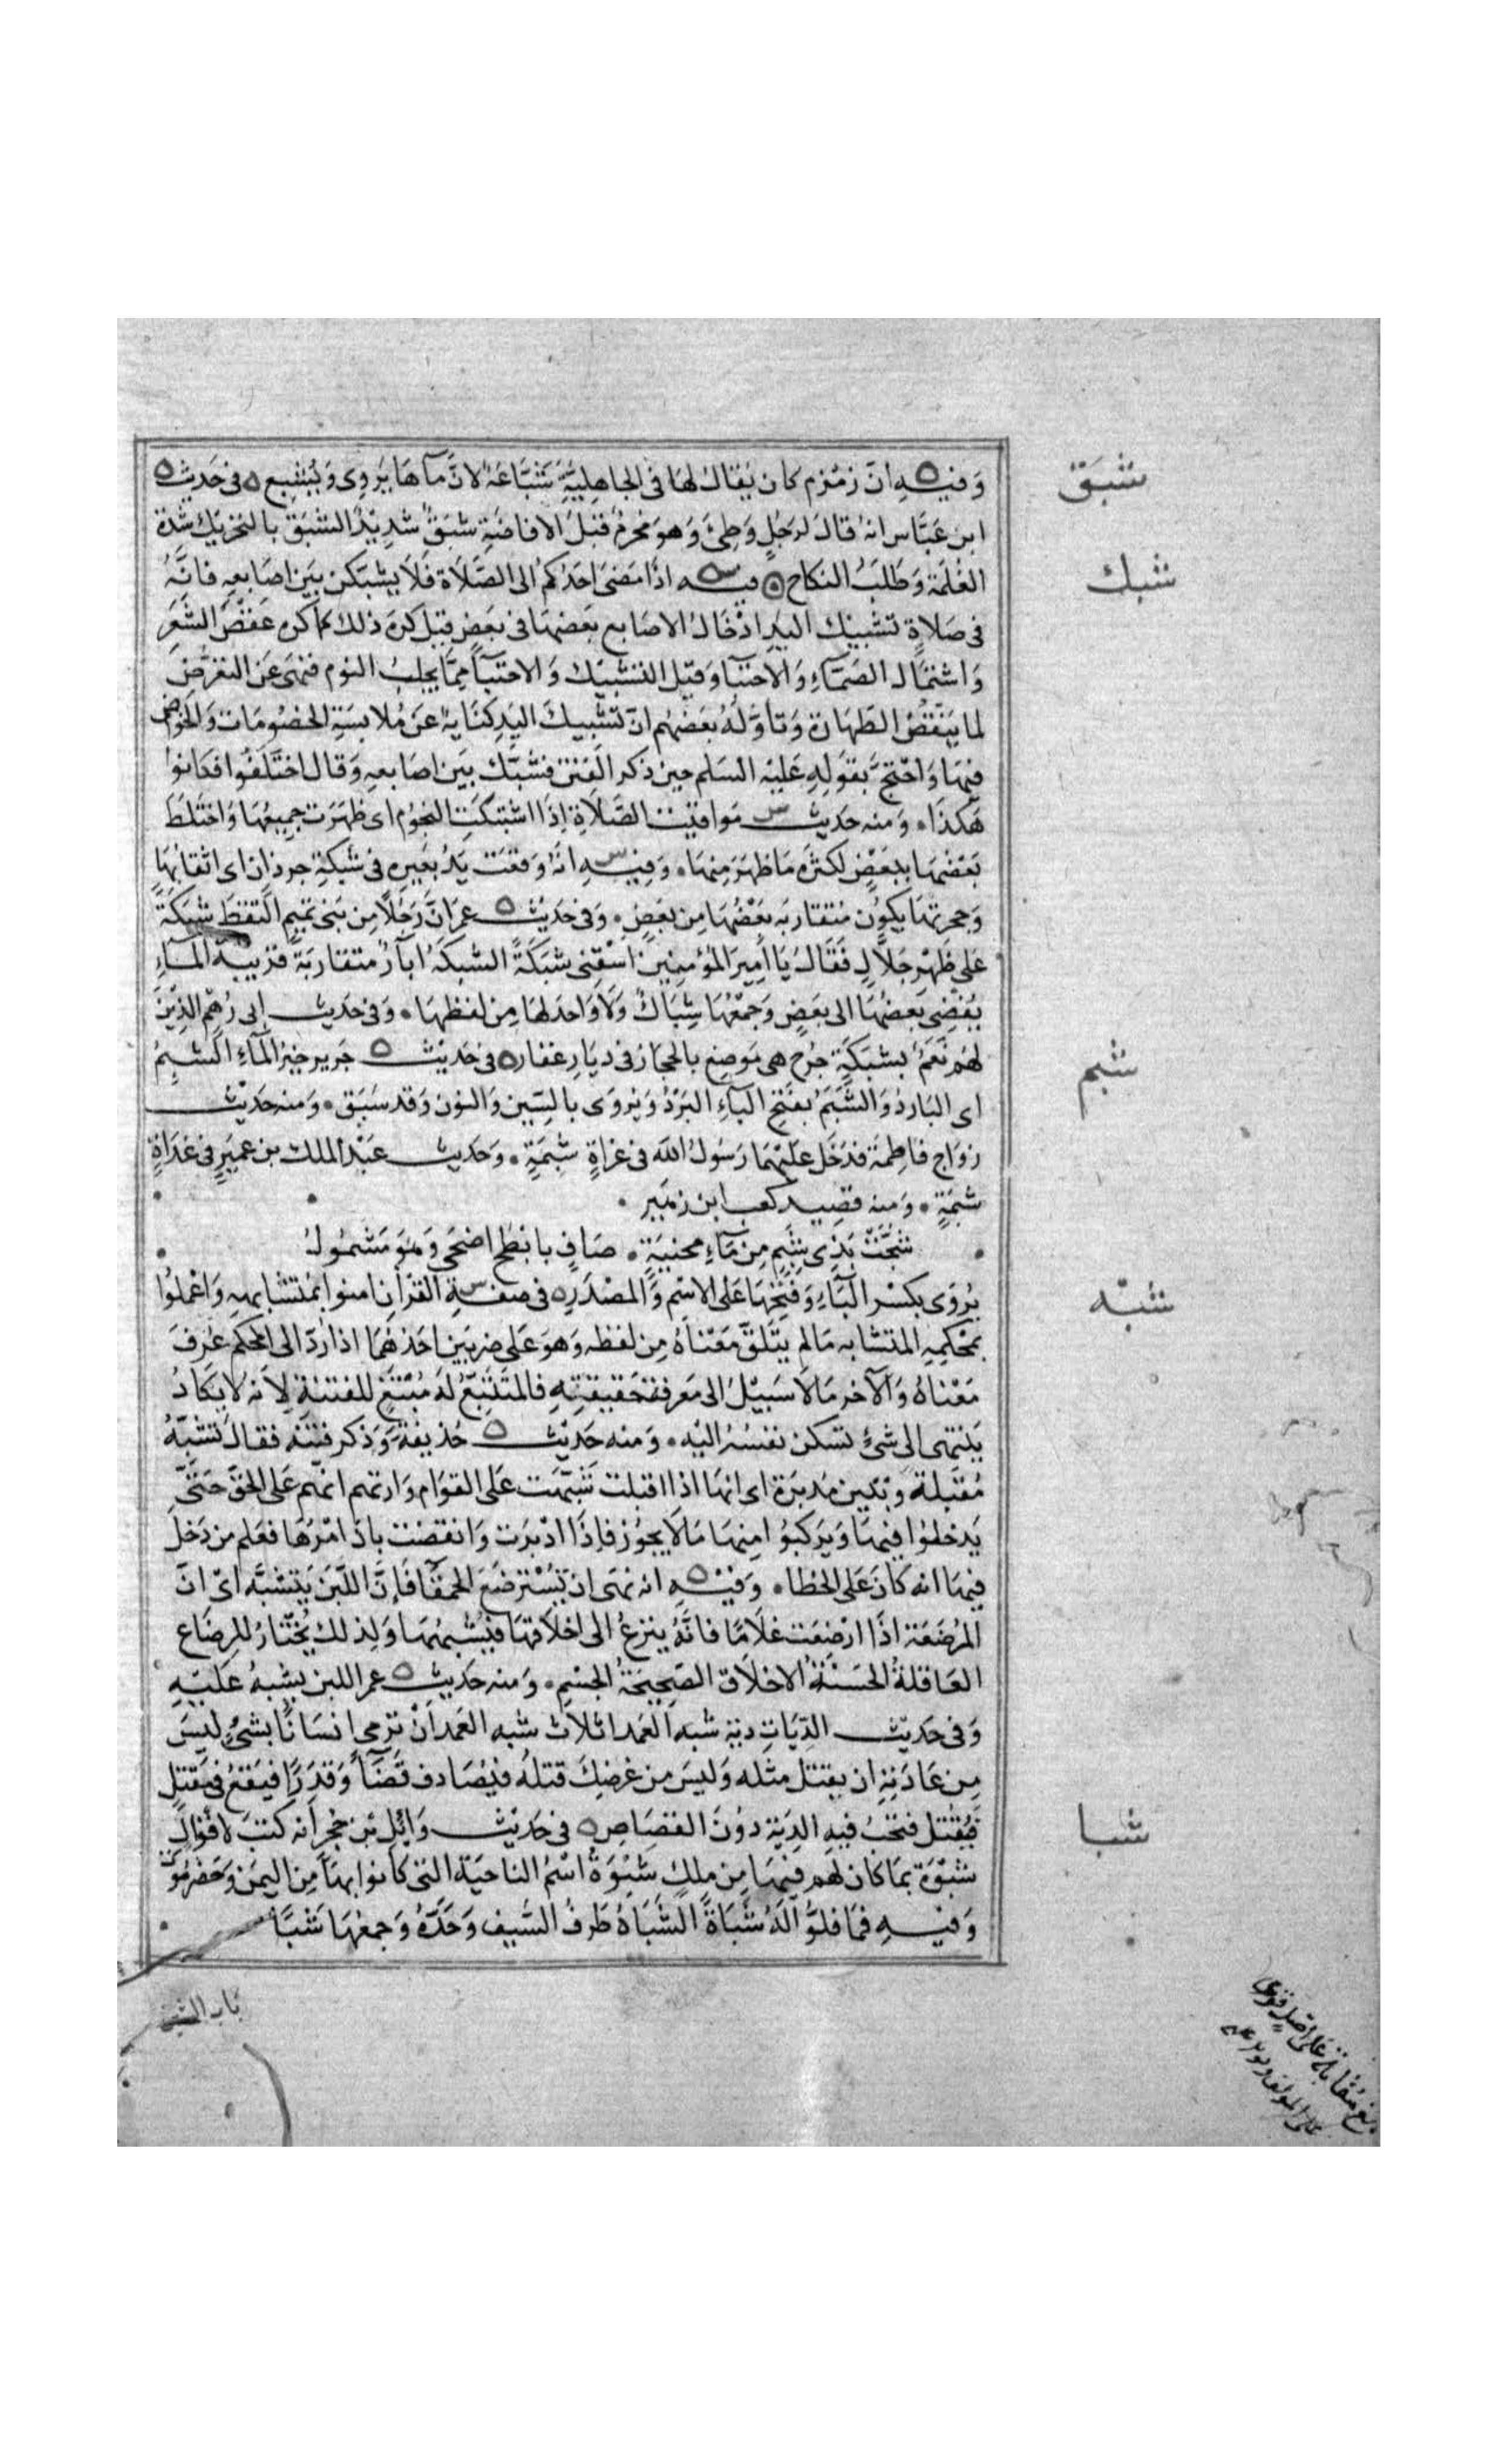 وَفيه انَّ زمْزم كان يُقالُ لهَا في الجاهِليَّةِ شَبَّاعَةُ لانَّ مآءهَا يُروِى وَيُشْبِع ٥ فى حَديث
شبَق
ابن عَبَّاس انهُ قالَ لرَجُلٍ وَطِئَ وَهوَ محْرمٌ قبْلَ الافاضَةِ شبَقٌ شَدِيْدٌ الشبَق بالتحْرِيك شدة
الغُلمَة وَطلَبُ النكاح ٥ فيه اذَا مَضىَ احَدُكم الى الصَّلاة فَلا يشبّكن بَيْن اصَابعِهِ فانَّهُ
شبك
فى صَلاةٍ تشبيْك اليدِ ادْخَالُ الاصَابع بعَضهَا فى بعَضٍ قيْل كرهَ ذلك كما كره عَقصُ الشَّعَرِ
وَاشتمَال الصَّمَّاءِ وَالاحتبَا وَقيْل التشبْيك وَالاحتبَآ مِمَّا يجلبُ النوم فنهىَ عَن التعَرُّض
لما يَنْقُضُ الطهَارة وَتأوَّلهُ بعَضهُم انّ تشْبيكَ اليَدِ كنَايةٌ عنَ مُلابسَةِ الخصُومَات وَالخوض
فيهَا وَاحْتجَّ بقوَلهِ عَليْه السَلم حين ذكر الفِتنَ فشبَّك بيَن اصَابعِهِ وَقال اختلَفُوا فكانوا
هكذَا ٠ وَمنه حَديث موَاقيت الصَّلاةِ اِذَا اشتبكَتِ النجُوُم اى ظهَرَت جميعُهَا وَاخْتلطَ
بَعْضهَا ببَعْضٍ لكثرَةِ مَا ظهَرَ مِنهَا ٠ وَفيه انهُ وَقعَت يَدُ بعَيرِه فى شَبكةِ جرذانٍ اى اثقَابُهَا
وَجحرتهَا يكوُن مُتقاربه بَعْضُهَا مِن بعَضٍ ٠ وَفى حَديث عمرَ انَّ رَجُلاً مِن بَنى تميمٍ التقطَ شَبكَةً
عَلى ظَهْرِ جَلاَّلٍ فَقَالَ يَا اَمِيرَ المؤمِنِينَ اسْقِنى شبَكَةً الشبكَةُ ابآرٌ متقاربَةٌ قرْيبَةُ المَآءِ
يُفضِى بَعضُهَا الى بعَضٍ وَجمْعُهَا شِبَاكٌ وَلاَ وَاحدَ لهَا مِن لفظِهَا ٠ وَفى حَديث ابى رُهْمٍ الذِينَ
لهُم نَعَمٌ بشبَكةِ جَرْح هى موَضِع بالحِجَاز فى دِيَارِ غفَار ٥ فى حَديث جَرير خيرُ المَآءِ الشبِمُ
شبم
اى البَاردُ وَالشَّبَمُ بفتحِ البآءِ البَرْدُ وَيُروَى بالسّين وَالنون وَقد سَبَق ٠ وَمنه حَديث
زوَاج فاطِمَة فدَخَل عَليْهمَا رَسُولُ الله فى غدَاةٍ شبِمَةٍ ٠ وَحَديث عَبْد الملك بن عمَيرٍ فى غدَاةٍ
شبِمَةٍ ٠ وَمنه قصِيد كعب ابن زهَيرٍ ٠
شُجَّتْ بِذِى شبِمٍ مِن مَآءِ محنيَةٍ ٠ صَافٍ بابْطَحَ اضحَى وَهوَ مَشموُلُ
يُروَى بكسْر البَآءِ وَفتحهَا عَلى الاِسْمِ وَالمَصْدَرِ ٥ فى صفةِ القرْآنِ امنوا بمُتشابهِهِ وَاعْملُوا
شبّه
بمحْكمِهِ المتشابه مَا لم يتَلقَّ مَعْناهُ مِن لفظه وَهوَ عَلى ضربَين احَدُهُمَا اذا رُدّ الى المحْكم عُرفَ
مَعْناهُ وَالآخر مَا لاَ سَبيْلَ الى مَعرفةِ حَقيقتِهِ فالمتَتَبّعُ لهُ مُبْتغٍ للفتنةِ لاَنه لا يكادُ
يَنتهى الى شئٍ تسكن نفسُهُ اليْهِ ٠ وَمنه حَديْث حُذيفةَ وَذكر فتنَةً فقالَ تشَبّهُ
مُقبلةً وَتبين مدبرَة اى انهَا اذا اقبلت شَبَّهَت عَلى القوم وَارتهم انهُم عَلى الحَقّ حَتَّى
يَدخلوُا فيهَا وَيرَكبُوا مِنهَا مَا لاَ يجوُز فإذَا ادْبرَت وَانقضَت بانَ امْرُهَا فعَلم من دَخلَ
فيهَا انه كانَ عَلى الخطا ٠ وَفيْه انه نهىَ ان تُسْترضَعَ الحمقآ فَإنَّ اللّبَنَ يَتشبَّه اىْ انَّ
المرُضعَة اذَا ارْضعَت غلاَمًا فانَّهُ ينزعُ الى اخلاقهَا فيُشبِهُهَا وَلِذلك يُختَارُ للرِضَاعِ
العَاقلةُ الحَسَنةُ الاخلاق الصَّحِيحَةُ الجسْمِ ٠ وَمنه حَديث عمر اللبن يشبهُ عَليَهِ
وَفى حَديث الدّيَاتِ ديَة شبه العَمد اثلاث شبه العَمد اَنْ ترْمى انسَانًا بشئٍ ليْسَ
مِن عَادَتِهِ ان يقتل مثله وَليسَ من غرَضِكَ قتلهُ فيُصَادف قضَآءً وَقدَرًا فيَقعُ فى مَقتلٍ
فيُقتل فتجبُ فيهِ الدِيَة دوُنَ القصَاص ٥ فى حَديث وَائِل بن حُجْرٍ انه كتبَ لأقوَال
شبا
شبْوَة بمَا كان لهُم فيهَا مِن ملكٍ شَبْوَةُ اسْمُ الناحيَة التى كانوا بهَا مِن اليمَن وَحَضْرموَت
وَفيْه فمَا فلوُّا لَهُ شَبَاةً الشَّبَاةُ طَرفُ السَّيف وَحَدُّهُ وَجمعُهَا شَبًا
باب الشين
بلغ مقابلة على اصل قوبل
على المولف